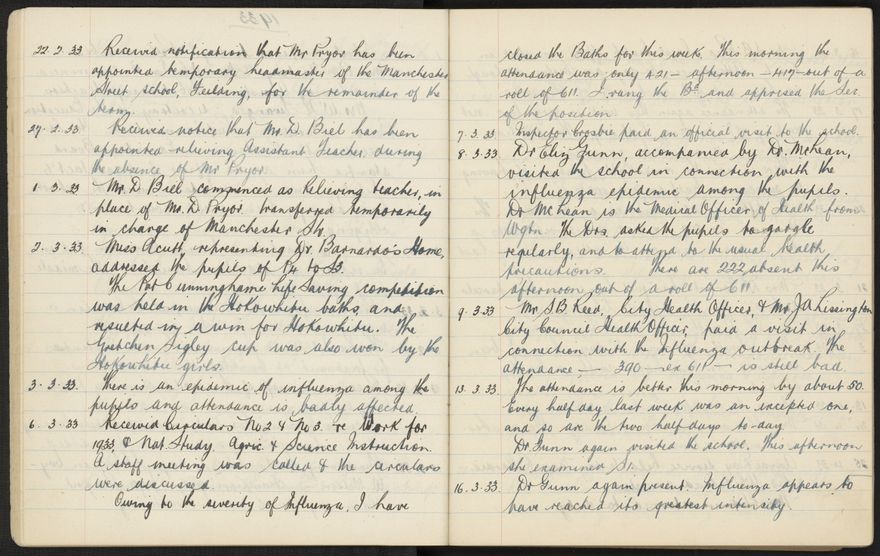 1933
22.2.33 Received notification that Mr Pryor has been
appointed temporary headmaster of the Manchester
Street school, Feilding, for the remainder of the
term.
27.2.33. Received notice that Mr. D. Biel has been
appointed relieving Assistant Teacher during
the absence of Mr Pryor
1.3.33 Mr. D Biel commenced as Relieving teacher, in
place of Mr. D. Pryor transferred temporarily
in charge of Manchester St.
2.3.33 Miss Acutt, representing Dr Barnardo's Home,
addressed the pupils of P4 to S3.
The Pat Cunninghame Life Saving competition
was held in the Hokowhitu baths and
resulted in a win for Hokowhitu. The
Gretchen Sigley cup was also won by the
Hokowhitu girls.
3.3.33. There is an epidemic of influenza among the
pupils and attendance is badly affected
6.3.33 Received Circulars No 2 & No 3 re Work for
1933, & Nat Study. Agric. & Science Instruction.
A staff meeting was called & the circulars
were discussed.
Owing to the severity of Influenza, I have
closed the Baths for this week. This morning the
attendance was only 421 — afternoon — 417 — out of a
roll of 611. I rang the Bd and apprised the Sec
of the position.
7.3.33 Inspector Crosbie paid an official visit to the school.
8.3.33 Dr Eliz Gunn, accompanied by Dr. McLean,
visited the school in connection with the
influenza epidemic among the pupils.
Dr McLean is the Medical Officer of Health from
Wgtn. The Drs. asked the pupils to gargle
regularly, and to attend to the usual health
precautions. There are 222 absent this
afternoon out of a roll of 611
9.3.33 Mr S B Reed, City Health Officer, & Mr. J A Lissington
City Council Health Officer, paid a visit in
connection with the Influenza outbreak. The
attendance — 390 — ex 611 — is still bad.
13.3.33. The attendance is better this morning by about 50.
Every half day last week was an excepted one,
and so are the two half-days to-day
Dr Gunn again visited the school. This afternoon
she examined S1.
16.3.33. Dr Gunn again present. Influenza appears to
have reached its greatest intensity